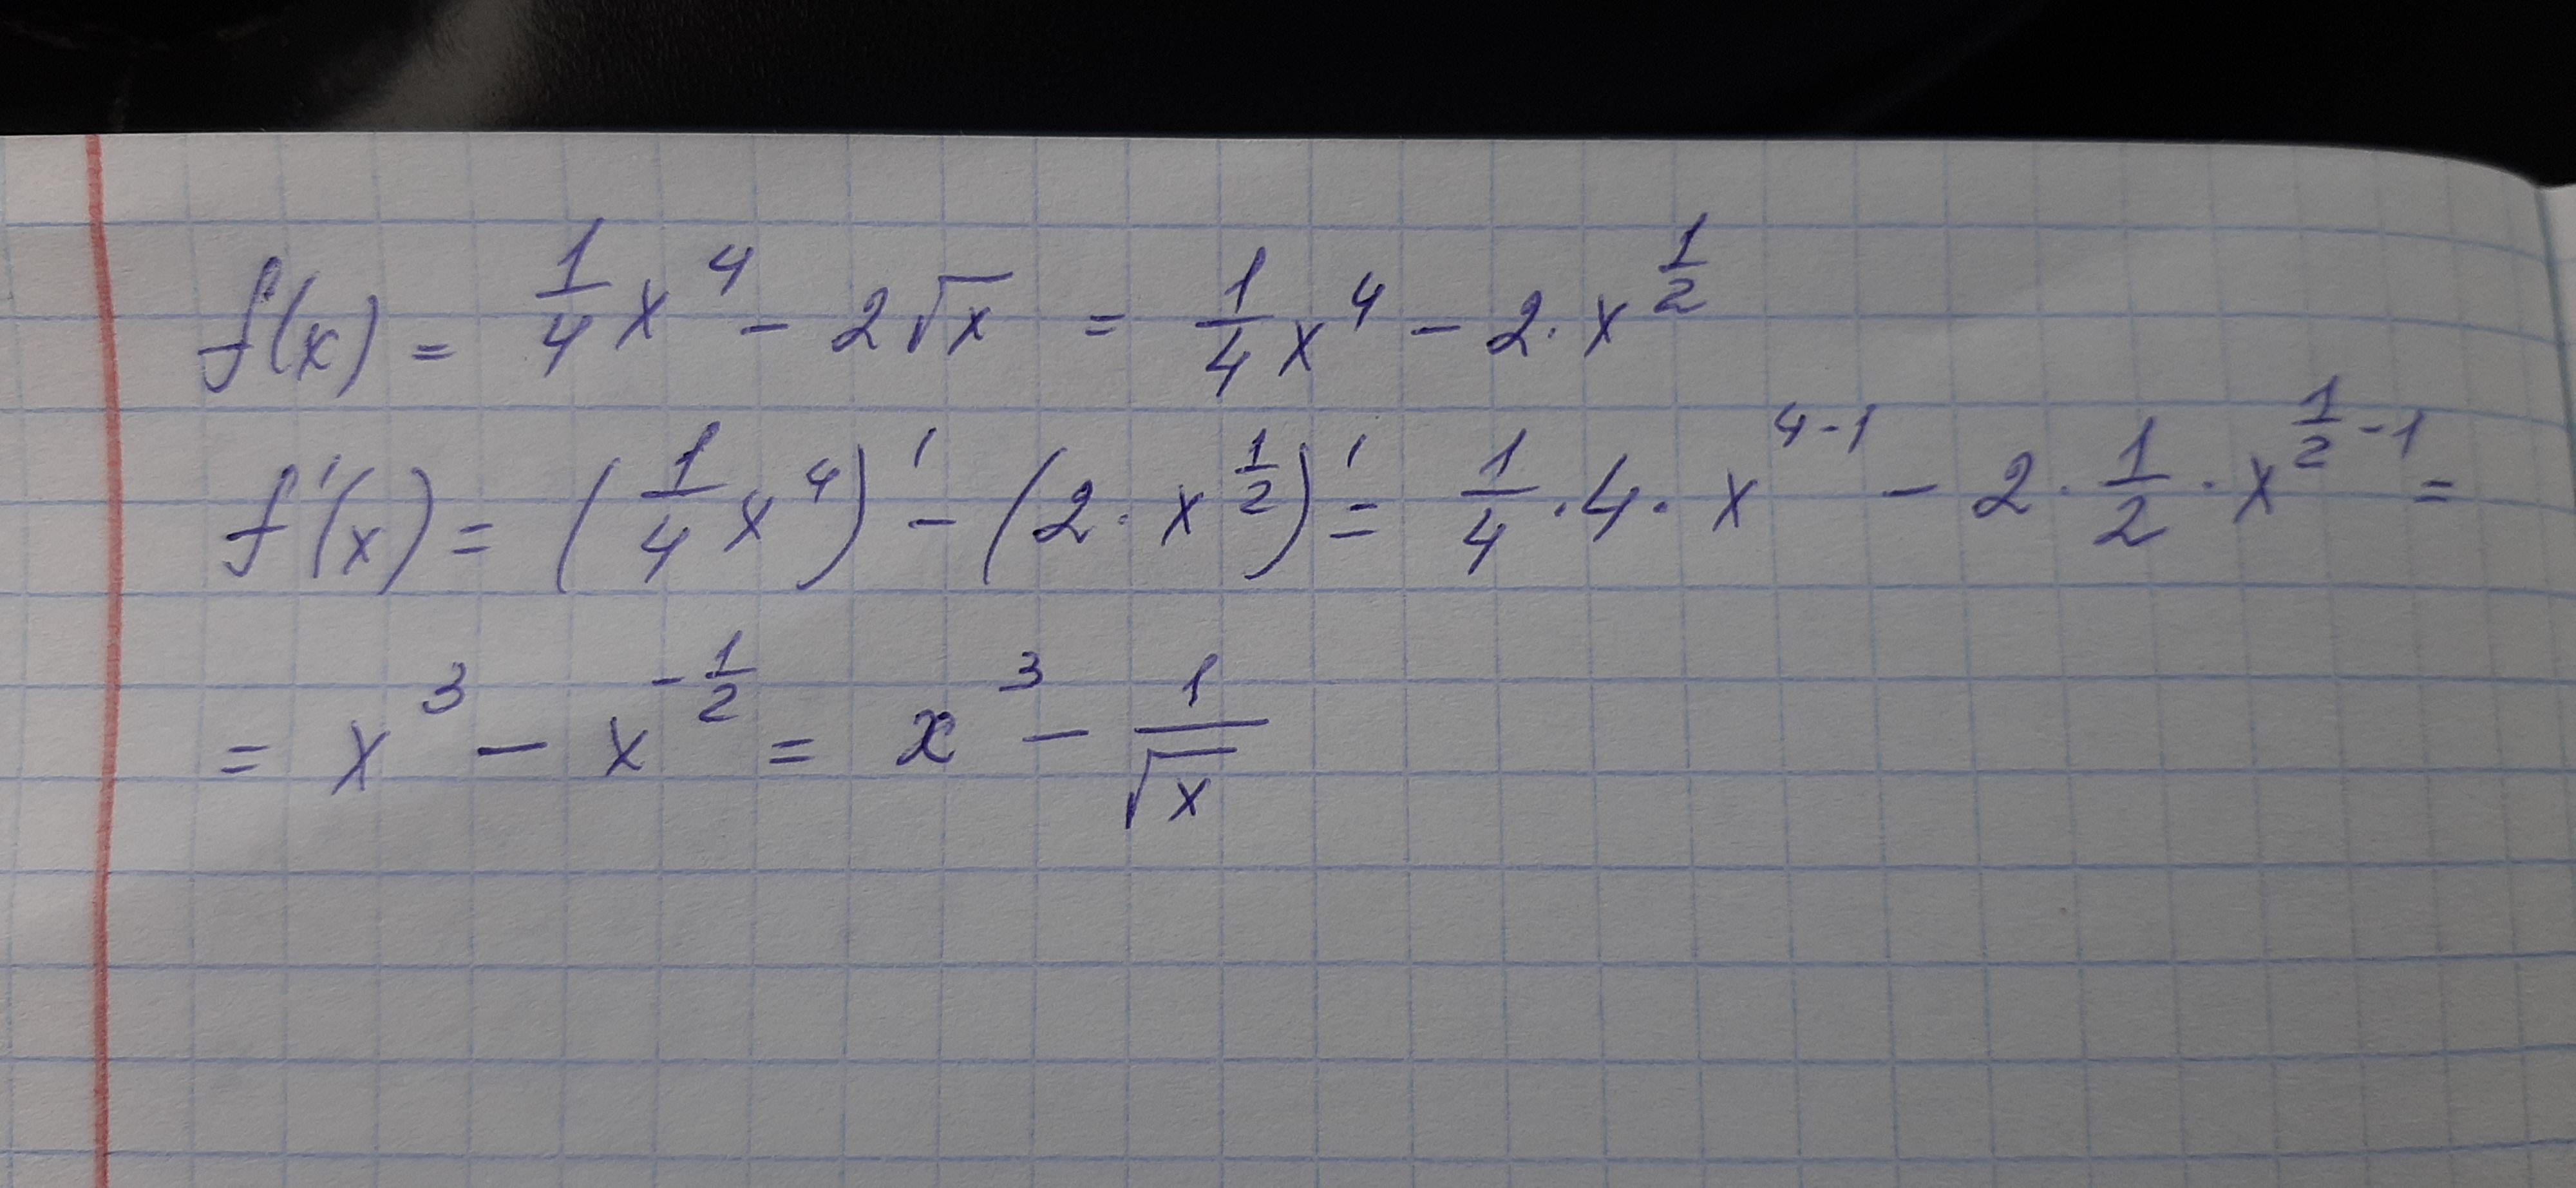 f(x) = 1/4 x^4 - 2√x = 1/4 x^4 - 2 · x^(1/2)
f'(x) = (1/4 x^4)' - (2 · x^(1/2))' = 1/4 · 4 · x^(4-1) - 2 · 1/2 · x^(1/2 - 1) =
= x^3 - x^(-1/2) = x^3 - 1/√x